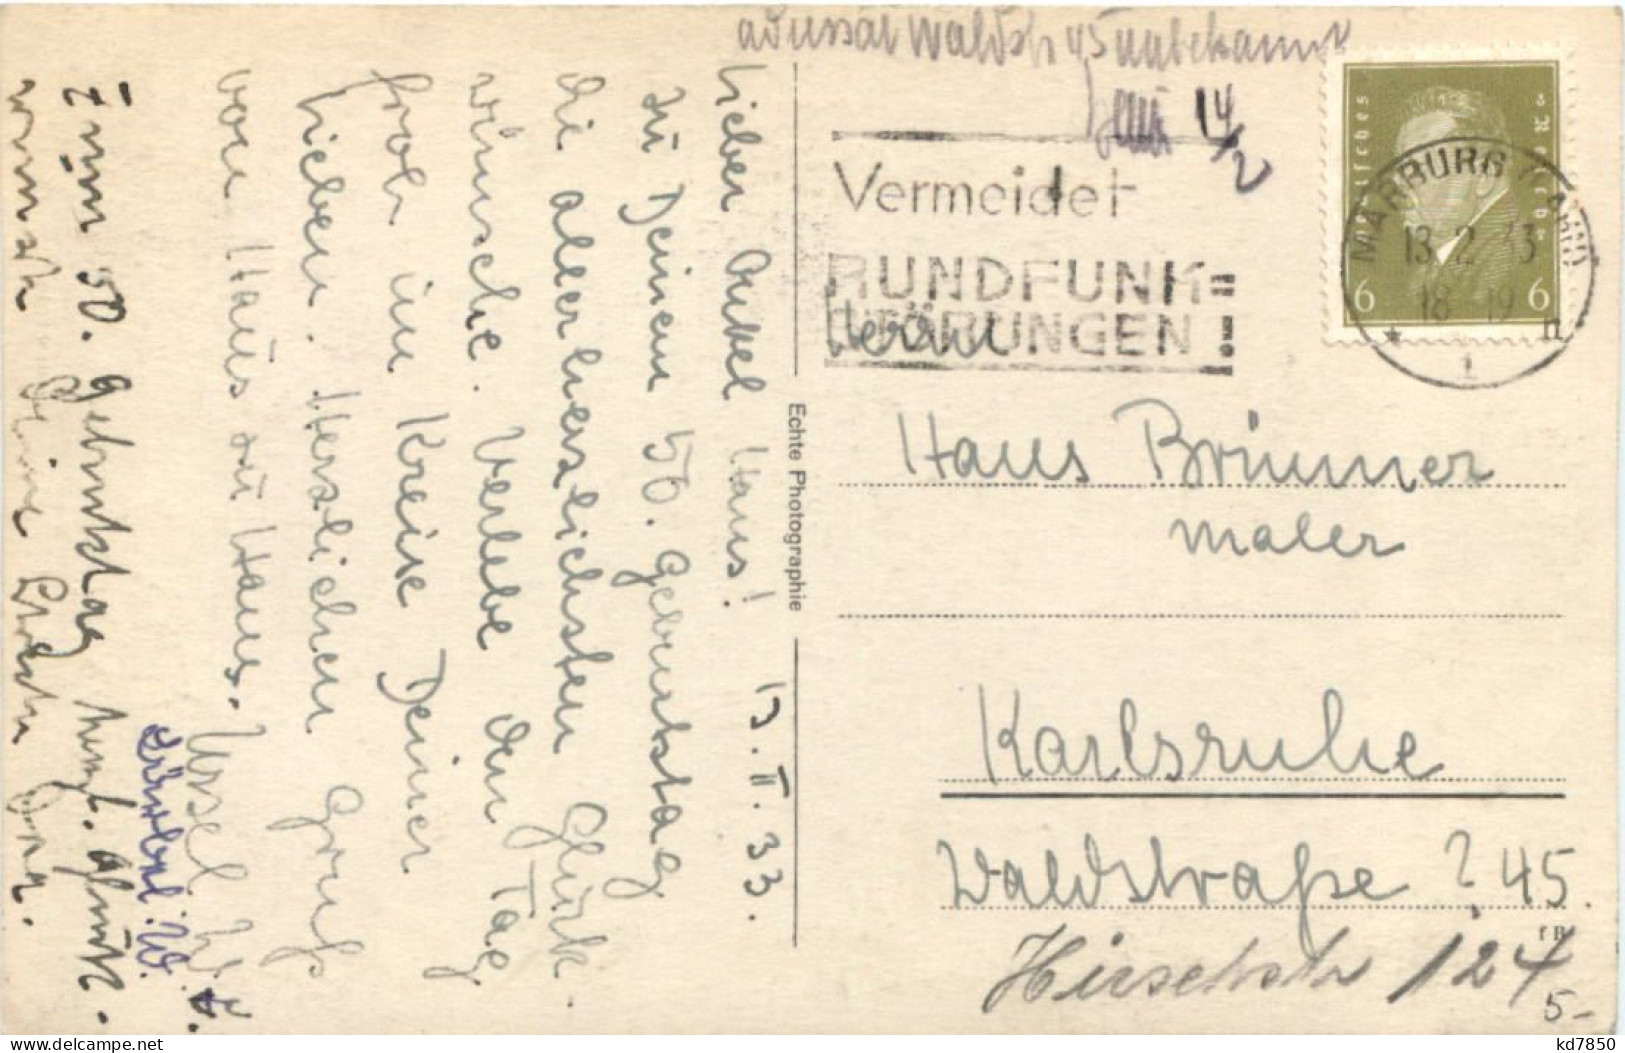 adressat Waldstr 45 unbekannt
14/2
Vermeidet
RUNDFUNK=
STÖRUNGEN!
Deutsches Reich
6 6
MARBURG (LAHN)
13.2.33
18-19
* 1 n
Herrn
Hans Brunner
Maler
Karlsruhe
Waldstraße ? 45.
Hirschstr 124
5-
Echte Photographie
13.II.33.
Lieber Onkel Hans!
Zu Deinem 50. Geburtstag
die allerherzlichsten Glück-
wünsche. Verlebe den Tag
froh im Kreise Deiner
Lieben. Herzlichen Gruß
von Haus zu Haus. Ursel W.
Zum 50. Geburtstag herzl. Glück-
wunsch
kd7850